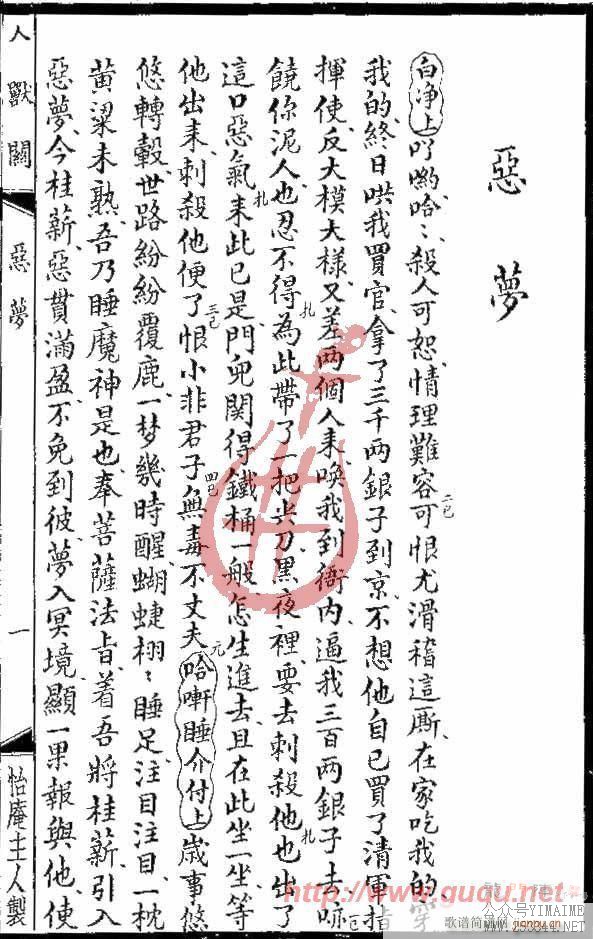 惡夢
白净上吖喲哈〻殺人可恕情理難容可恨尤滑稽這厮在家吃我的穿
我的終日哄我買官拿了三千两銀子到京不想他自己買了清軍指
揮使反大模大樣又差两個人来喚我到衙内逼我三百两銀子去咏
饒你泥人也忍不得為此帶了一把尖刀黑夜裡要去刺殺他也出了
這口惡氣来此已是門兒関得鐵桶一般怎生進去且在此坐一坐等
他出来刺殺他便了恨小非君子無毒不丈夫哈㖇睡介付上歲事悠
悠轉轂世路紛紛覆鹿一梦幾時醒蝴蝶栩〻睡足注目注目一枕
黄粱未熟吾乃睡魔神是也奉菩薩法旨着吾將桂薪引入
惡夢今桂薪惡貫滿盈不免到彼夢入冥境顯一果報與他使
人獸關
惡夢
一
怡庵主人製
http://www.ququ.net
歌谱简谱网
公众号YIMAIME